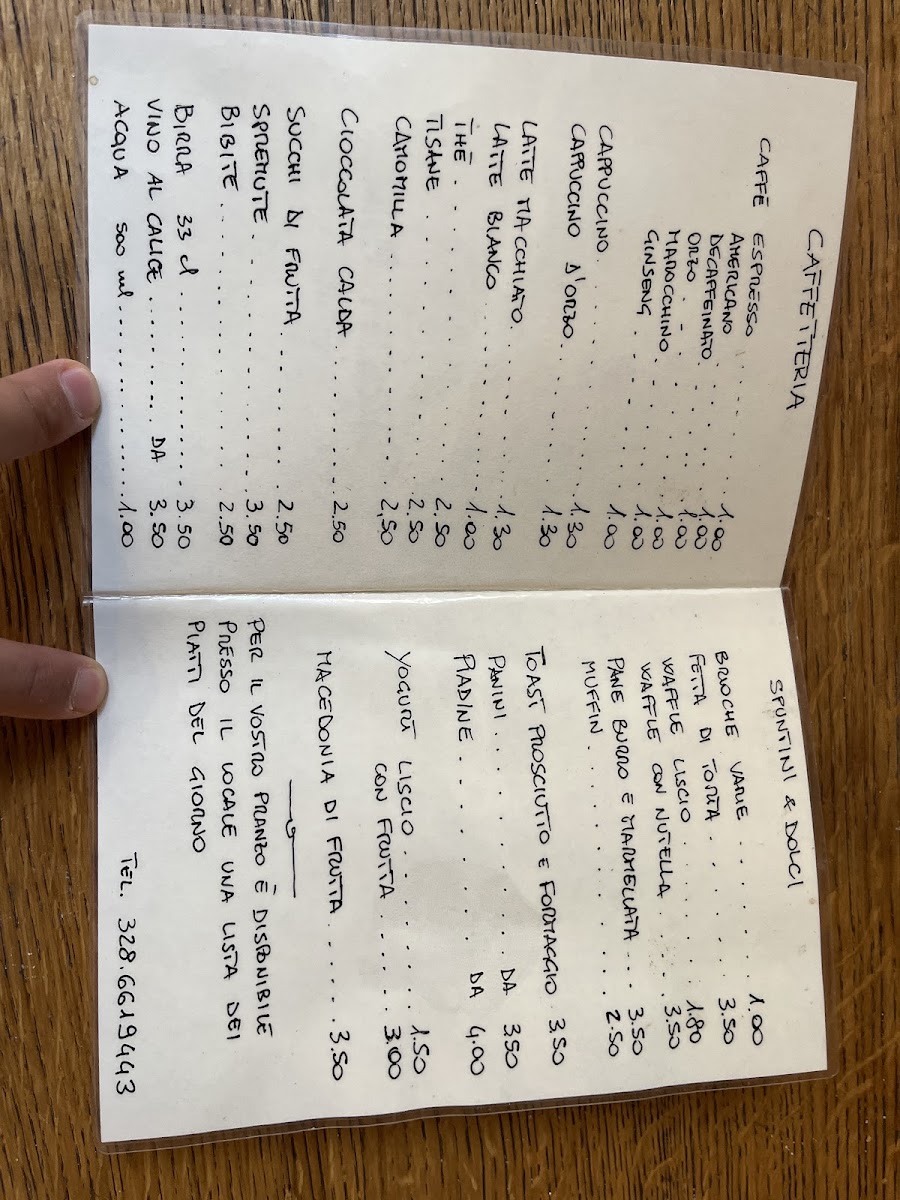 CAFFETTERIA
CAFFÈ ESPRESSO . . . . . . 1.00
AMERICANO . . . . . . 1.00
DECAFFEINATO . . . . . 1.00
ORZO . . . . . . 1.00
MAROCCHINO . . . . . 1.00
GINSENG . . . . . . 1.00
CAPPUCCINO . . . . . . . . 1.30
CAPPUCCINO D'ORZO . . . . . . 1.30
LATTE MACCHIATO . . . . . . 1.30
LATTE BIANCO . . . . . . . 1.00
THÈ . . . . . . . . . 2.50
TISANE . . . . . . . . . 2.50
CAMOMILLA . . . . . . . . 2.50
CIOCCOLATA CALDA . . . . . . 2.50
SUCCHI DI FRUTTA . . . . . . 2.50
SPREMUTE . . . . . . . . . 3.50
BIBITE . . . . . . . . . . 2.50
BIRRA 33 cl . . . . . . . . . 3.50
VINO AL CALICE . . . . . . DA 3.50
ACQUA 500 ml . . . . . . . . . 1.00
SPUNTINI & DOLCI
BRIOCHE VARIE . . . . . . 1.00
FETTA DI TORTA . . . . . . 3.50
WAFFLE LISCIO . . . . . . 1.80
WAFFLE CON NUTELLA . . . . 3.50
PANE BURRO E MARMELLATA . . . 3.50
MUFFIN . . . . . . . . . 2.50
TOAST PROSCIUTTO E FORMAGGIO . 3.50
PANINI . . . . . . . . DA 3.50
PIADINE . . . . . . . DA 4.00
YOGURT LISCIO . . . . . . . 1.50
CON FRUTTA . . . . . 3.00
MACEDONIA DI FRUTTA . . . . . 3.50
PER IL VOSTRO PRANZO È DISPONIBILE
PRESSO IL LOCALE UNA LISTA DEI
PIATTI DEL GIORNO
TEL. 328.6619443